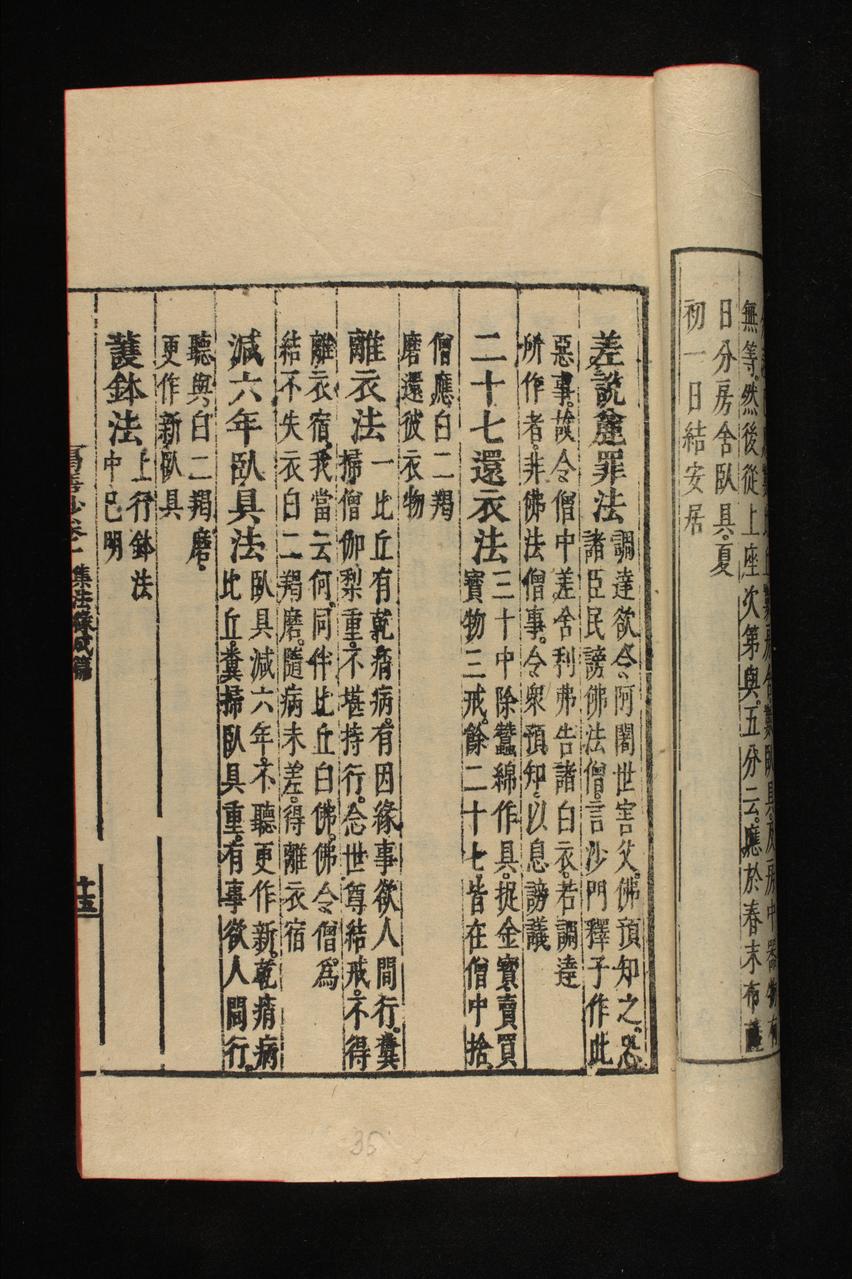 無等然後從上座次第與五分云應於春末布薩
日分房舍臥具夏
初一日結安居
差說麤罪法
調達欲令阿闍世害父佛預知之恐
諸臣民謗佛法僧言沙門釋子作此
惡事故令僧中差舍利弗告諸白衣若調達
所作者非佛法僧事令眾預知以息謗議
二十七還衣法
三十中除蠶綿作具捉金寶賣買
寶物三戒餘二十七皆在僧中捨
僧應白二羯
磨還彼衣物
離衣法
一比丘有乾痟病有因緣事欲人間行糞
掃僧伽梨重不堪持行念世尊結戒不得
離衣宿我當云何同伴比丘白佛佛令僧為
結不失衣白二羯磨隨病未差得離衣宿
減六年臥具法
臥具減六年不聽更作新乾痟病
比丘糞掃臥具重有事欲人間行
聽與白二羯磨
更作新臥具
護鉢法
上行鉢法
中已明
集法緣成篇
十五
35